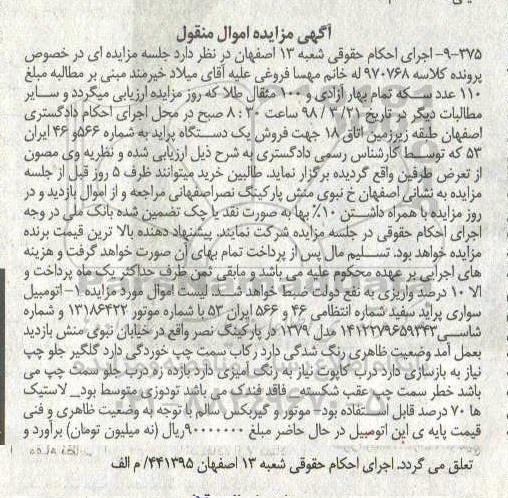 آگهی مزایده اموال منقول
۳۷۵-۹- اجرای احکام حقوقی شعبه ۱۳ اصفهان در نظر دارد جلسه مزایده ای در خصوص
پرونده کلاسه ۹۷۰۷۶۸ له خانم مهسا فروغی علیه آقای میلاد خیرمند مبنی بر مطالبه مبلغ
۱۱۰ عدد سکه تمام بهار آزادی و ۱۰۰ مثقال طلا که روز مزایده ارزیابی میگردد و سایر
مطالبات دیگر در تاریخ ۹۸/۳/۲۱ ساعت ۸:۳۰ صبح در محل اجرای احکام دادگستری
اصفهان طبقه زیرزمین اتاق ۱۸ جهت فروش یک دستگاه پراید به شماره ۵۶۶و ۴۶ ایران
۵۳ که توسط کارشناس رسمی دادگستری به شرح ذیل ارزیابی شده و نظریه وی مصون
از تعرض طرفین واقع گردیده برگزار نماید. طالبین خرید میتوانند ظرف ۵ روز قبل از جلسه
مزایده به نشانی اصفهان خ نبوی منش پارکینگ نصراصفهانی مراجعه و از اموال بازدید و در
روز مزایده با همراه داشتن ۱۰٪ بها به صورت نقد یا چک تضمین شده بانک ملی در وجه
اجرای احکام حقوقی در جلسه مزایده شرکت نمایند. پیشنهاد دهنده بالا ترین قیمت برنده
مزایده خواهد بود. تسلیم مال پس از پرداخت تمام بهای آن صورت خواهد گرفت و هزینه
های اجرایی بر عهده محکوم علیه می باشد و مابقی ثمن ظرف حداکثر یک ماه پرداخت و
الا ۱۰ درصد واریزی به نفع دولت ضبط خواهد شد. لیست اموال مورد مزایده ۱- اتومبیل
سواری پراید سفید شماره انتظامی ۴۶ و ۵۶۶ ایران ۵۳ با شماره موتور ۱۳۱۸۶۴۲۲ و شماره
شاسی ۱۴۱۲۲۷۹۶۵۹۳۴۳ مدل ۱۳۷۹ در پارکینگ نصر واقع در خیابان نبوی منش بازدید
بعمل آمد وضعیت ظاهری رنگ شدگی دارد رکاب سمت چپ خوردگی دارد گلگیر جلو چپ
نیاز به بازسازی دارد درب کاپوت نیاز به رنگ آمیزی دارد نوارده زه درب جلو سمت چپ می
باشد خطر سمت چپ عقب شکسته - فاقد فندک می باشد تودوزی متوسط بود_ لاستیک
ها ۷۰ درصد قابل استفاده بود- موتور و گیربکس سالم با توجه به وضعیت ظاهری و فنی
قیمت پایه ی این اتومبیل در حال حاضر مبلغ ۹۰۰۰۰۰۰۰ریال (نه میلیون تومان) برآورد و
تعلق می گردد. اجرای احکام حقوقی شعبه ۱۳ اصفهان ۴۴۱۳۹۵/ م الف